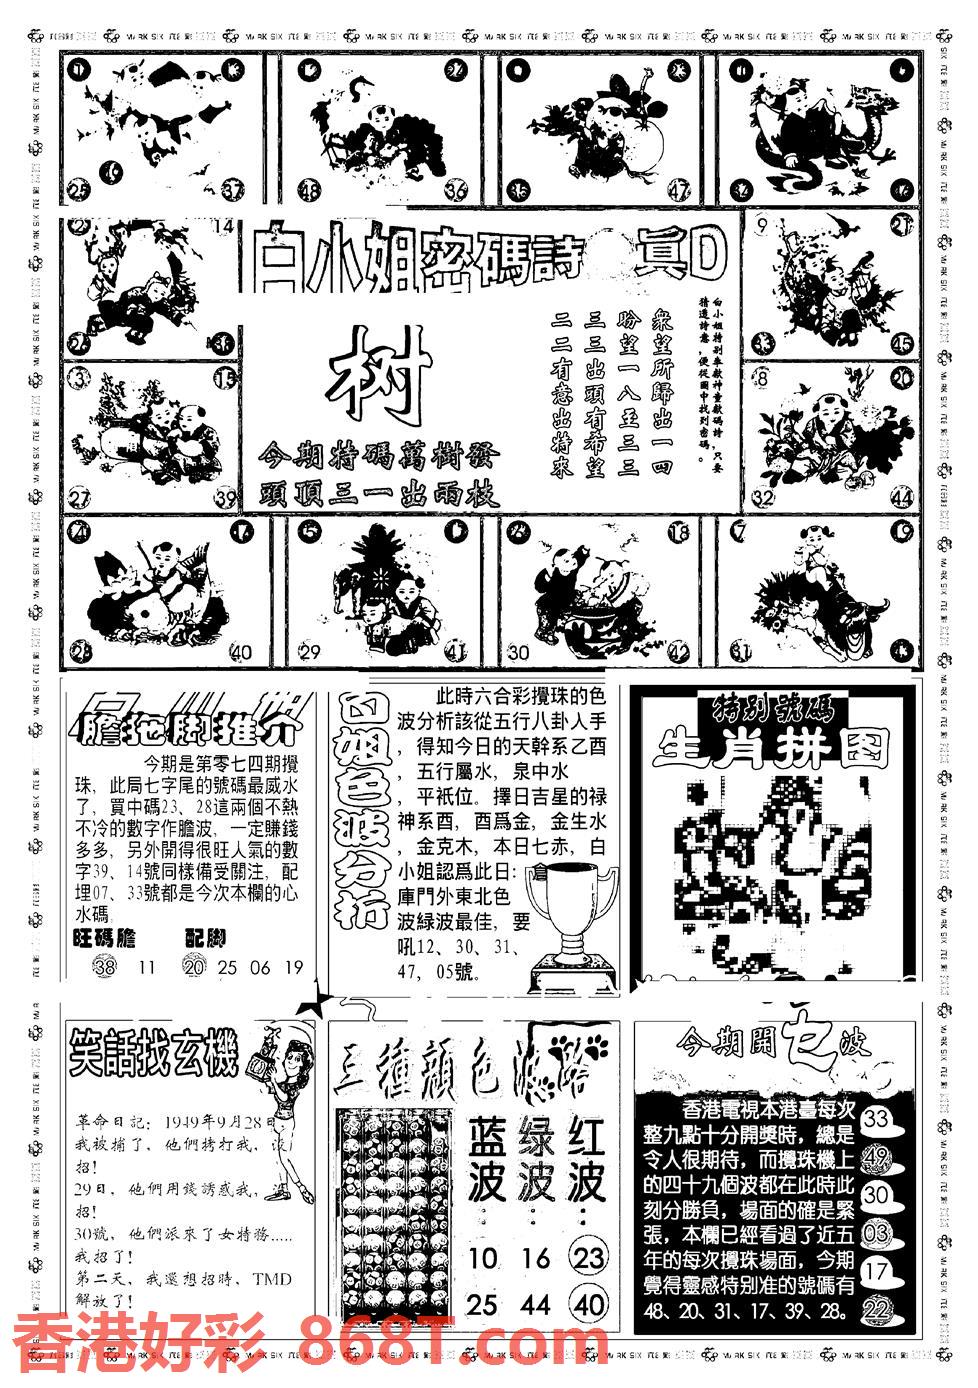 25
37
48
36
35
47
2
14
26
38
9
21
33
45
白小姐密碼詩
真D
白小姐特別奉獻神童獻碼詩，只要
猜透詩意，便從圖中找到密碼。
眾望所歸出一四
盼望一八至三三
三三出頭有希望
二二有意出特來
树
今期特碼萬樹發
頭頂三一出兩枝
3
15
27
39
8
20
32
44
4
28
40
5
29
41
18
30
42
7
19
31
膽拖脚推介
今期是第零七四期攪
珠，此局七字尾的號碼最威水
了，買中碼23、28這兩個不熱
不冷的數字作膽波，一定賺錢
多多，另外開得很旺人氣的數
字39、14號同樣備受關注，配
埋07、33號都是今次本欄的心
水碼，
旺碼膽 配脚
38 11 20 25 06 19
白姐色波分析
此時六合彩攪珠的色
波分析該從五行八卦人手
，得知今日的天幹系乙酉
，五行屬水，泉中水
，平衹位。擇日吉星的禄
神系酉，酉爲金，金生水
，金克木，本日七赤，白
小姐認爲此日：倉
庫門外東北色
波緑波最佳，要
吼12、30、31、
47，05號。
特别號碼
生肖拼图
笑話找玄機
革命日記：1949年9月28日
我被捕了，他們拷打我，沒
招！
29日，他們用錢誘惑我，沒
招！
30號，他們派來了女特務.....
我招了！
第二天，我還想招時，TMD
解放了！
三種顏色波路
蓝波： 绿波： 红波：
10 16 23
25 44 40
今期開七波
香港電視本港臺每次
整九點十分開獎時，總是
令人很期待，而攪珠機上
的四十九個波都在此時此
刻分勝負，場面的確是緊
張，本欄已經看過了近五
年的每次攪珠場面，今期
覺得靈感特别准的號碼有
48、20、31、17、39、28。
33
49
30
03
17
22
香港好彩 868T.com